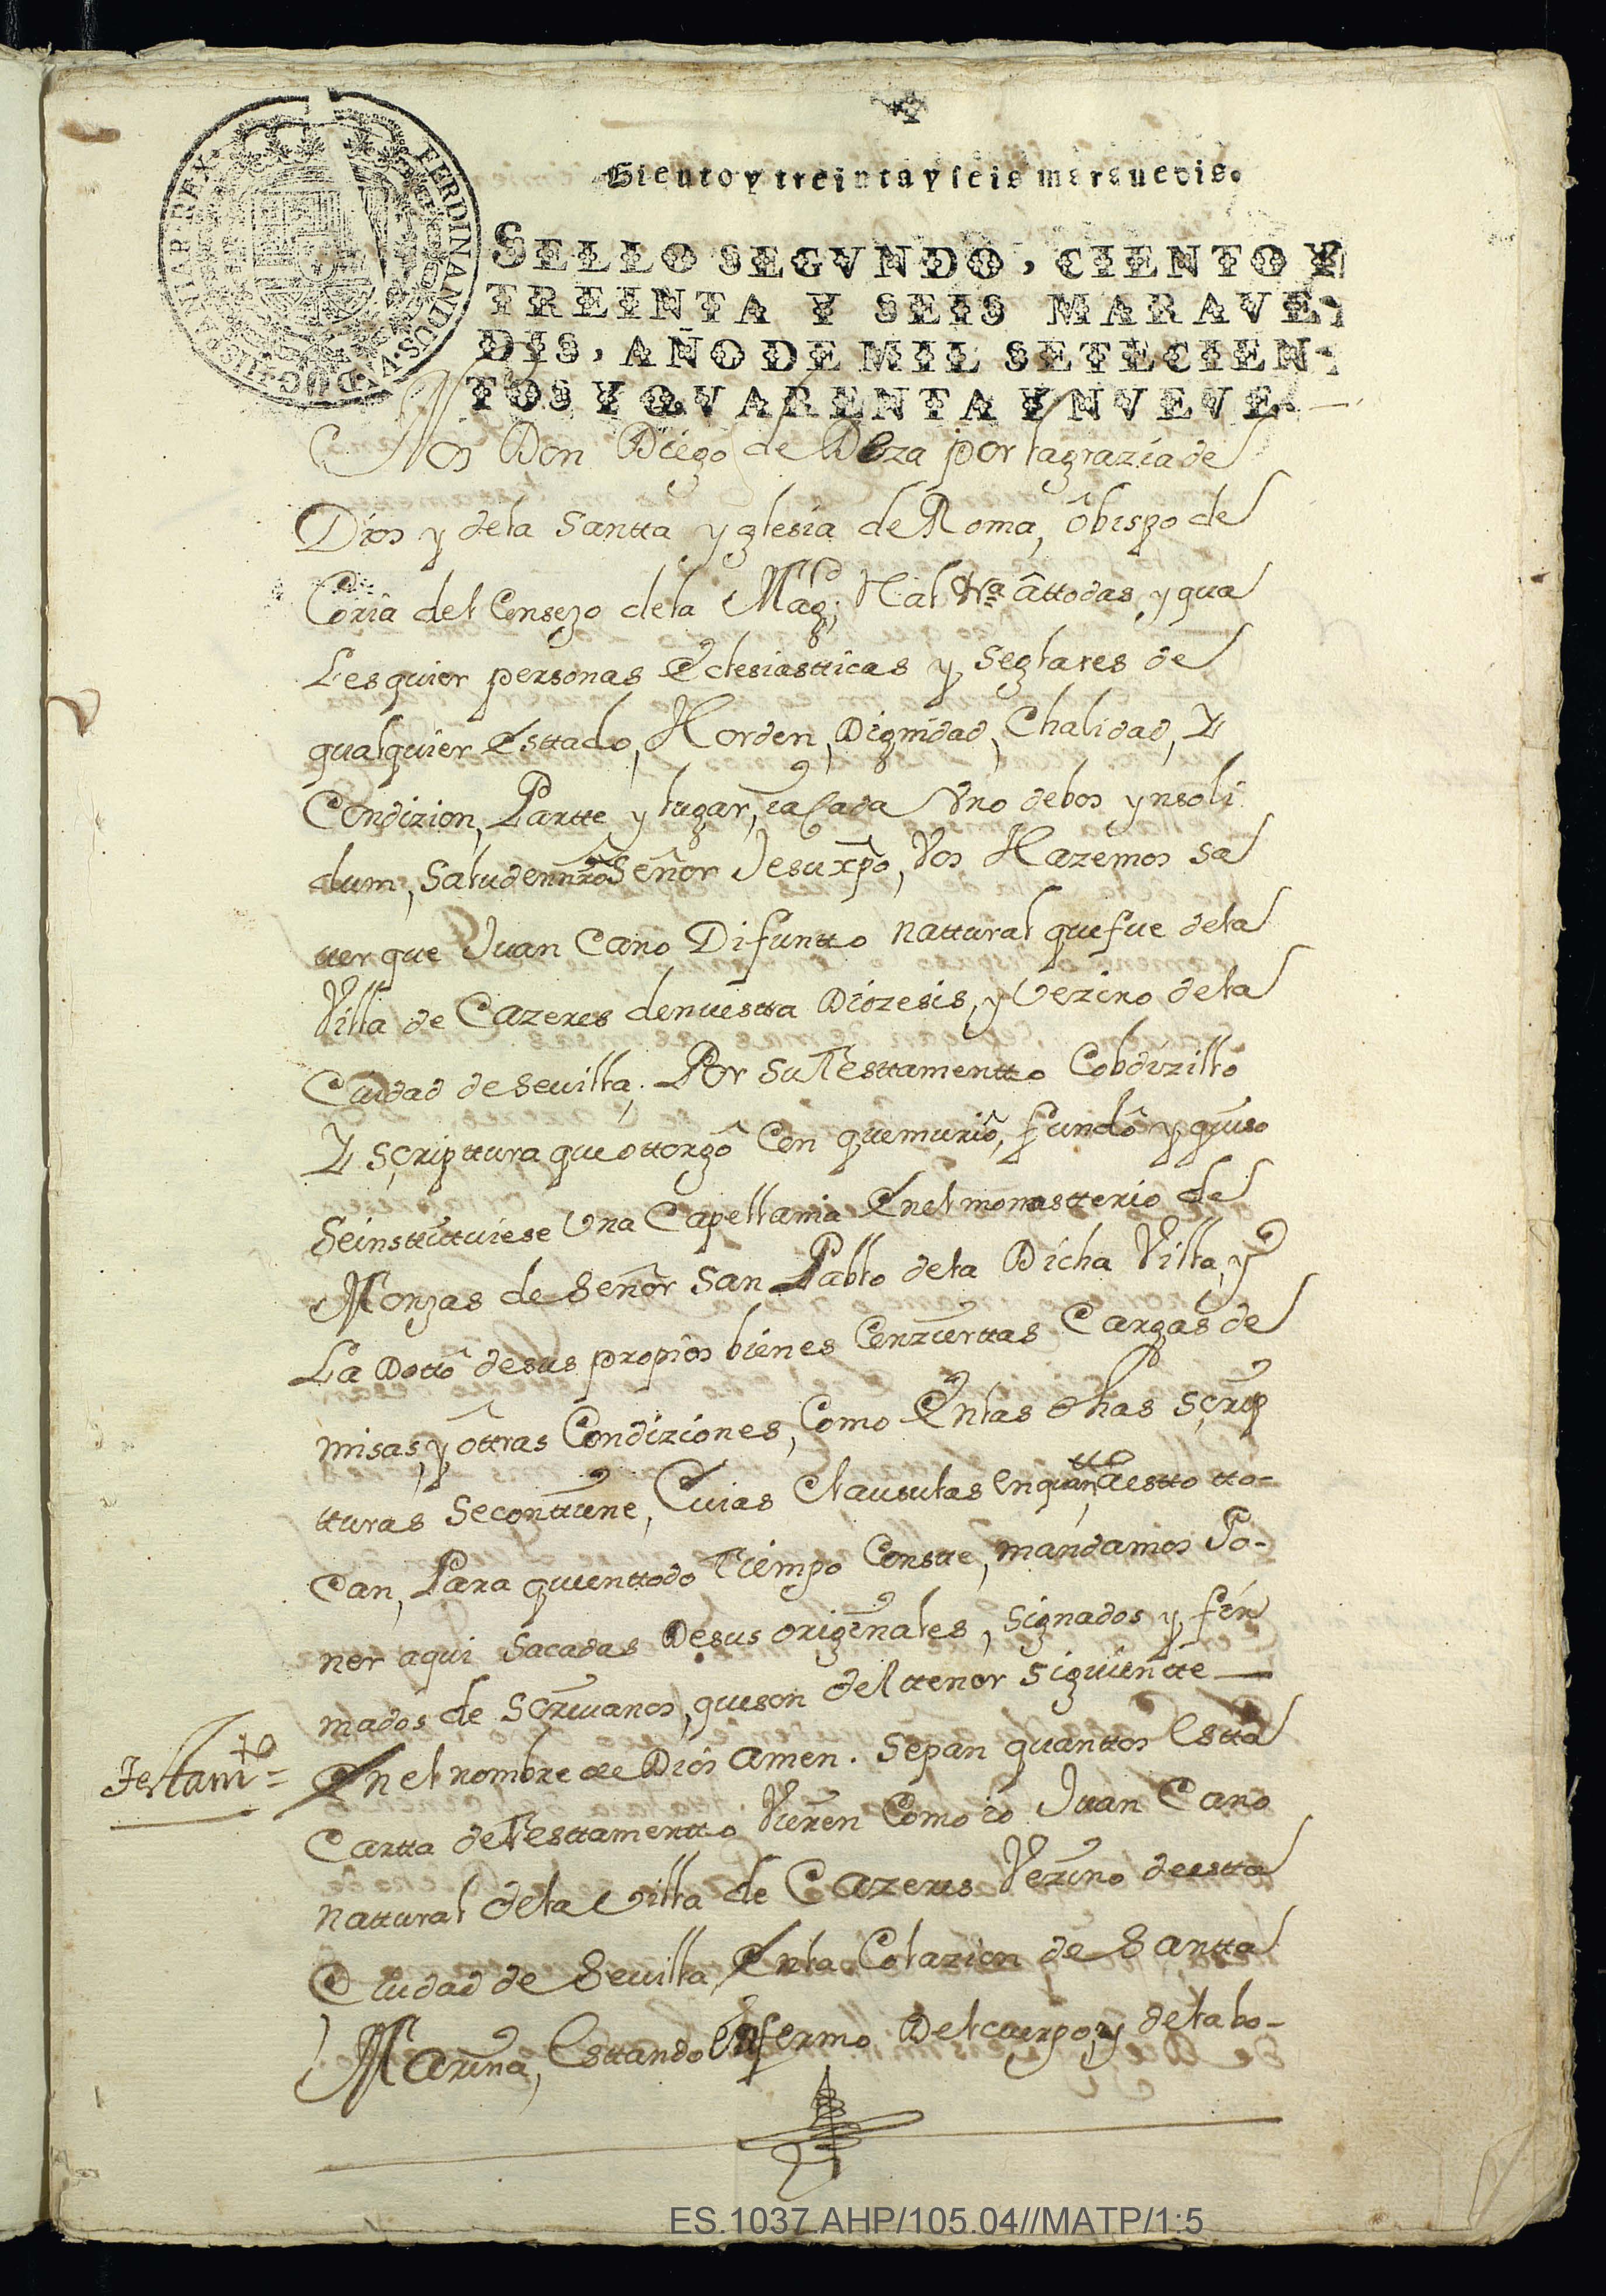 FERDINANDUS.VI.D.G.HISPANIAR.REX.
Ciento y treinta y seis maravedis.
SELLO SEGVNDO, CIENTO Y
TREINTA Y SEIS MARAVE
DIS, AÑO DE MIL SETECIEN
TOS Y QVARENTA Y NVEVE
Nos Don Diego de Deza por la grazia de
Dios y de la Santta yglesia de Roma, ôbispo de
Coria del Consejo de la Magd. Ral &ra âttodas, y qua
Lesquier personas Eclesiastticas y seglares de
qualquier Esttado, Horden, Dignidad, Chalidad, Y
Condizion, Partte y lugar, ia Cada Vno debos ynsoli
dum, Salud en nrõ Señor Jesuxpo, Vos Hazemos sa
uer que Juan Cano Difuntto nattural que fue de la
Villa de Cazeres de nuestta Diozesis, y Vezino de la
Ciudad de Seuilla; Por su Testtamentto Cobdizillo
Y Scripttura que ottorgô Con que muriô, fundô y quiso
Se insttittuiese Una Capellania En el monastterio de
Monjas de Señor San Pablo de la Dicha Villa, y
La Dottô de sus propiôs bienes Con zierttas Cargas de
misas, y ôttras Condiziones, Como En las dhas Scrip
tturas se conttiene, Cuias Clausulas en quantto aestto tto-
Can, Para que en ttodo Tiempo Conste, mandamos Po-
ner aqui Sacadas De sus originales, signados y fir
mados de Scriuanos, que son del ttenor siguientte
Testamto=
En el nombre de Dios Amen. Sepan quanttos Estta
Cartta de Testtamentto Vieren Como io Juan Cano
nattural de la Villa de Cazeres Vezino de estta
Ciudad de Seuilla, En la Colazion de Santta
Marina, Esttando Enfermo Del cuerpo, y de la bo-
ES.1037.AHP/105.04//MATP/1:5